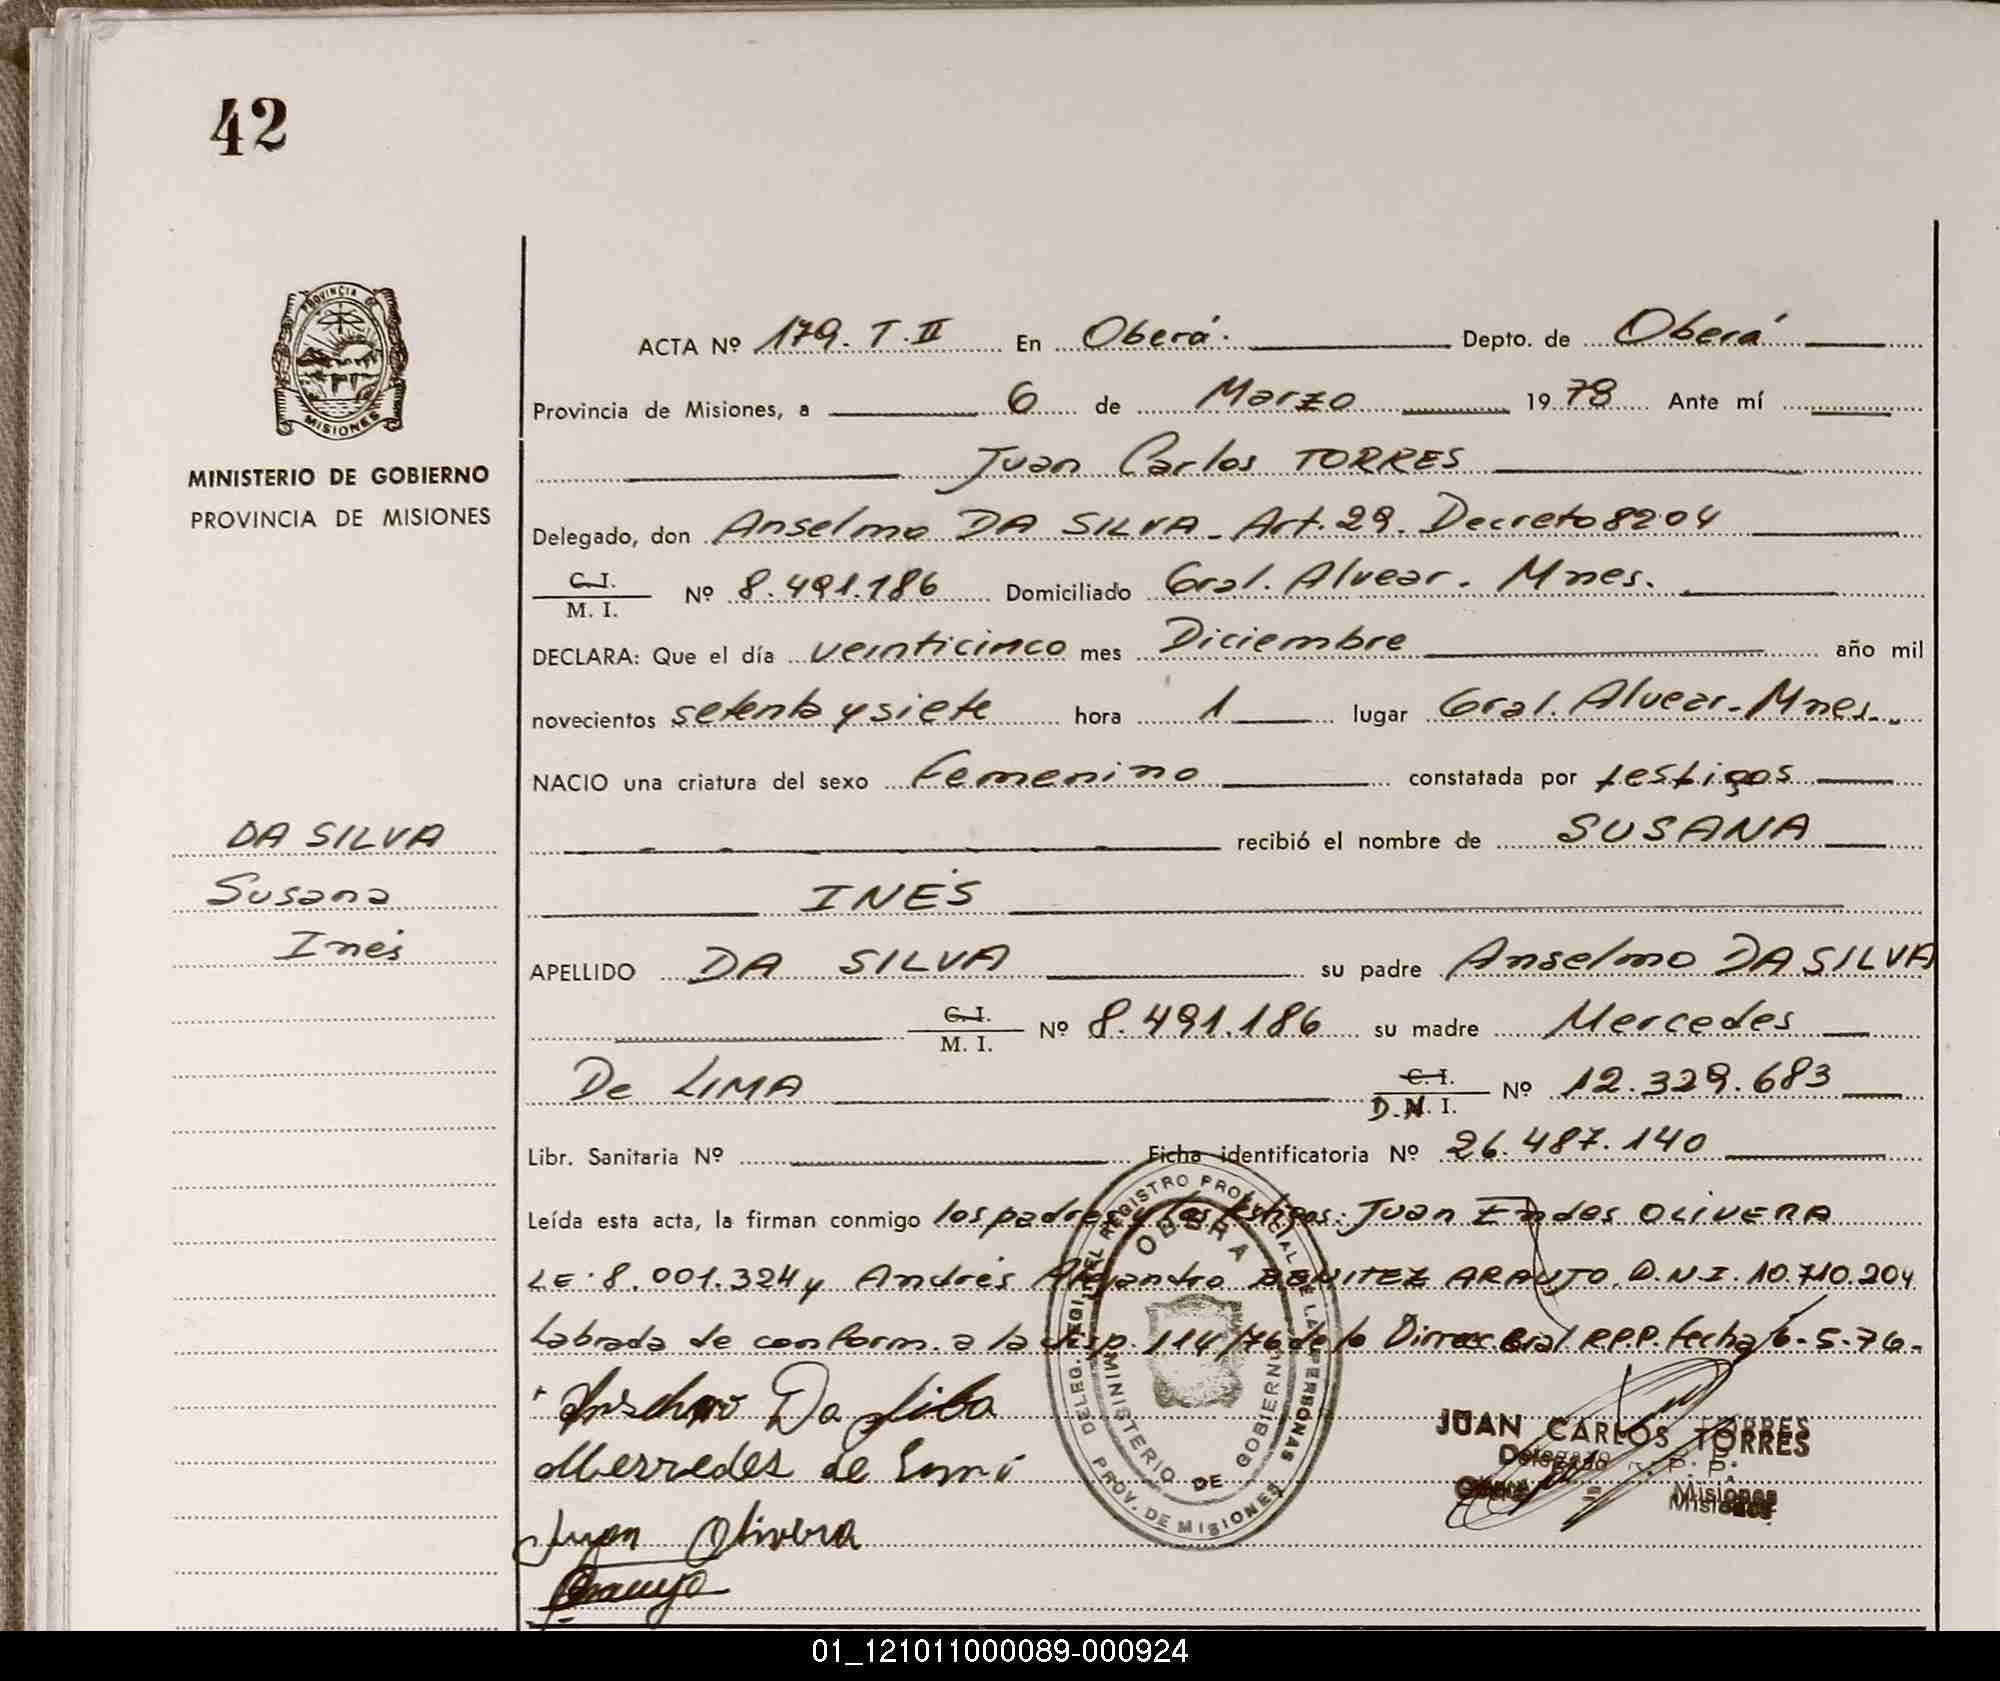 42
PROVINCIA DE
MISIONES
MINISTERIO DE GOBIERNO
PROVINCIA DE MISIONES
ACTA Nº 179. T. II En Oberá. Depto. de Oberá
Provincia de Misiones, a 6 de Marzo 1978 Ante mí
Juan Carlos TORRES
Delegado, don Anselmo DA SILVA - Art. 29. Decreto 8204
C. I.
M. I. Nº 8.491.186 Domiciliado Gral. Alvear. Mnes.
DECLARA: Que el día veinticinco mes Diciembre año mil
novecientos setenta y siete hora 1 lugar Gral. Alvear. Mnes.
NACIO una criatura del sexo Femenino constatada por testigos
recibió el nombre de SUSANA
INÉS
DA SILVA
Susana
Inés
APELLIDO DA SILVA su padre Anselmo DA SILVA
C. I.
M. I. Nº 8.491.186 su madre Mercedes
De LIMA C. I.
D.N. I. Nº 12.329.683
Libr. Sanitaria Nº Ficha identificatoria Nº 26.487.140
Leída esta acta, la firman conmigo los padres y los testigos: Juan OLIVERA
LE: 8.001.324 y Andrés Alejandro BENITEZ ARAUJO. D.N.I. 10.710.204
Labrada de conform. a la 114/76 de la Gral. R.P.P. fecha 6-5-76.
Da Silva
Mercedes de
Juan Olivera
Araujo
DELEG. REGL. DEL REGISTRO PROVINCIAL DE LAS PERSONAS
OBERA
MINISTERIO DE GOBIERNO
PROV. DE MISIONES
JUAN CARLOS TORRES
Delegado R. P. P.
Oberá - Misiones
01_121011000089-000924